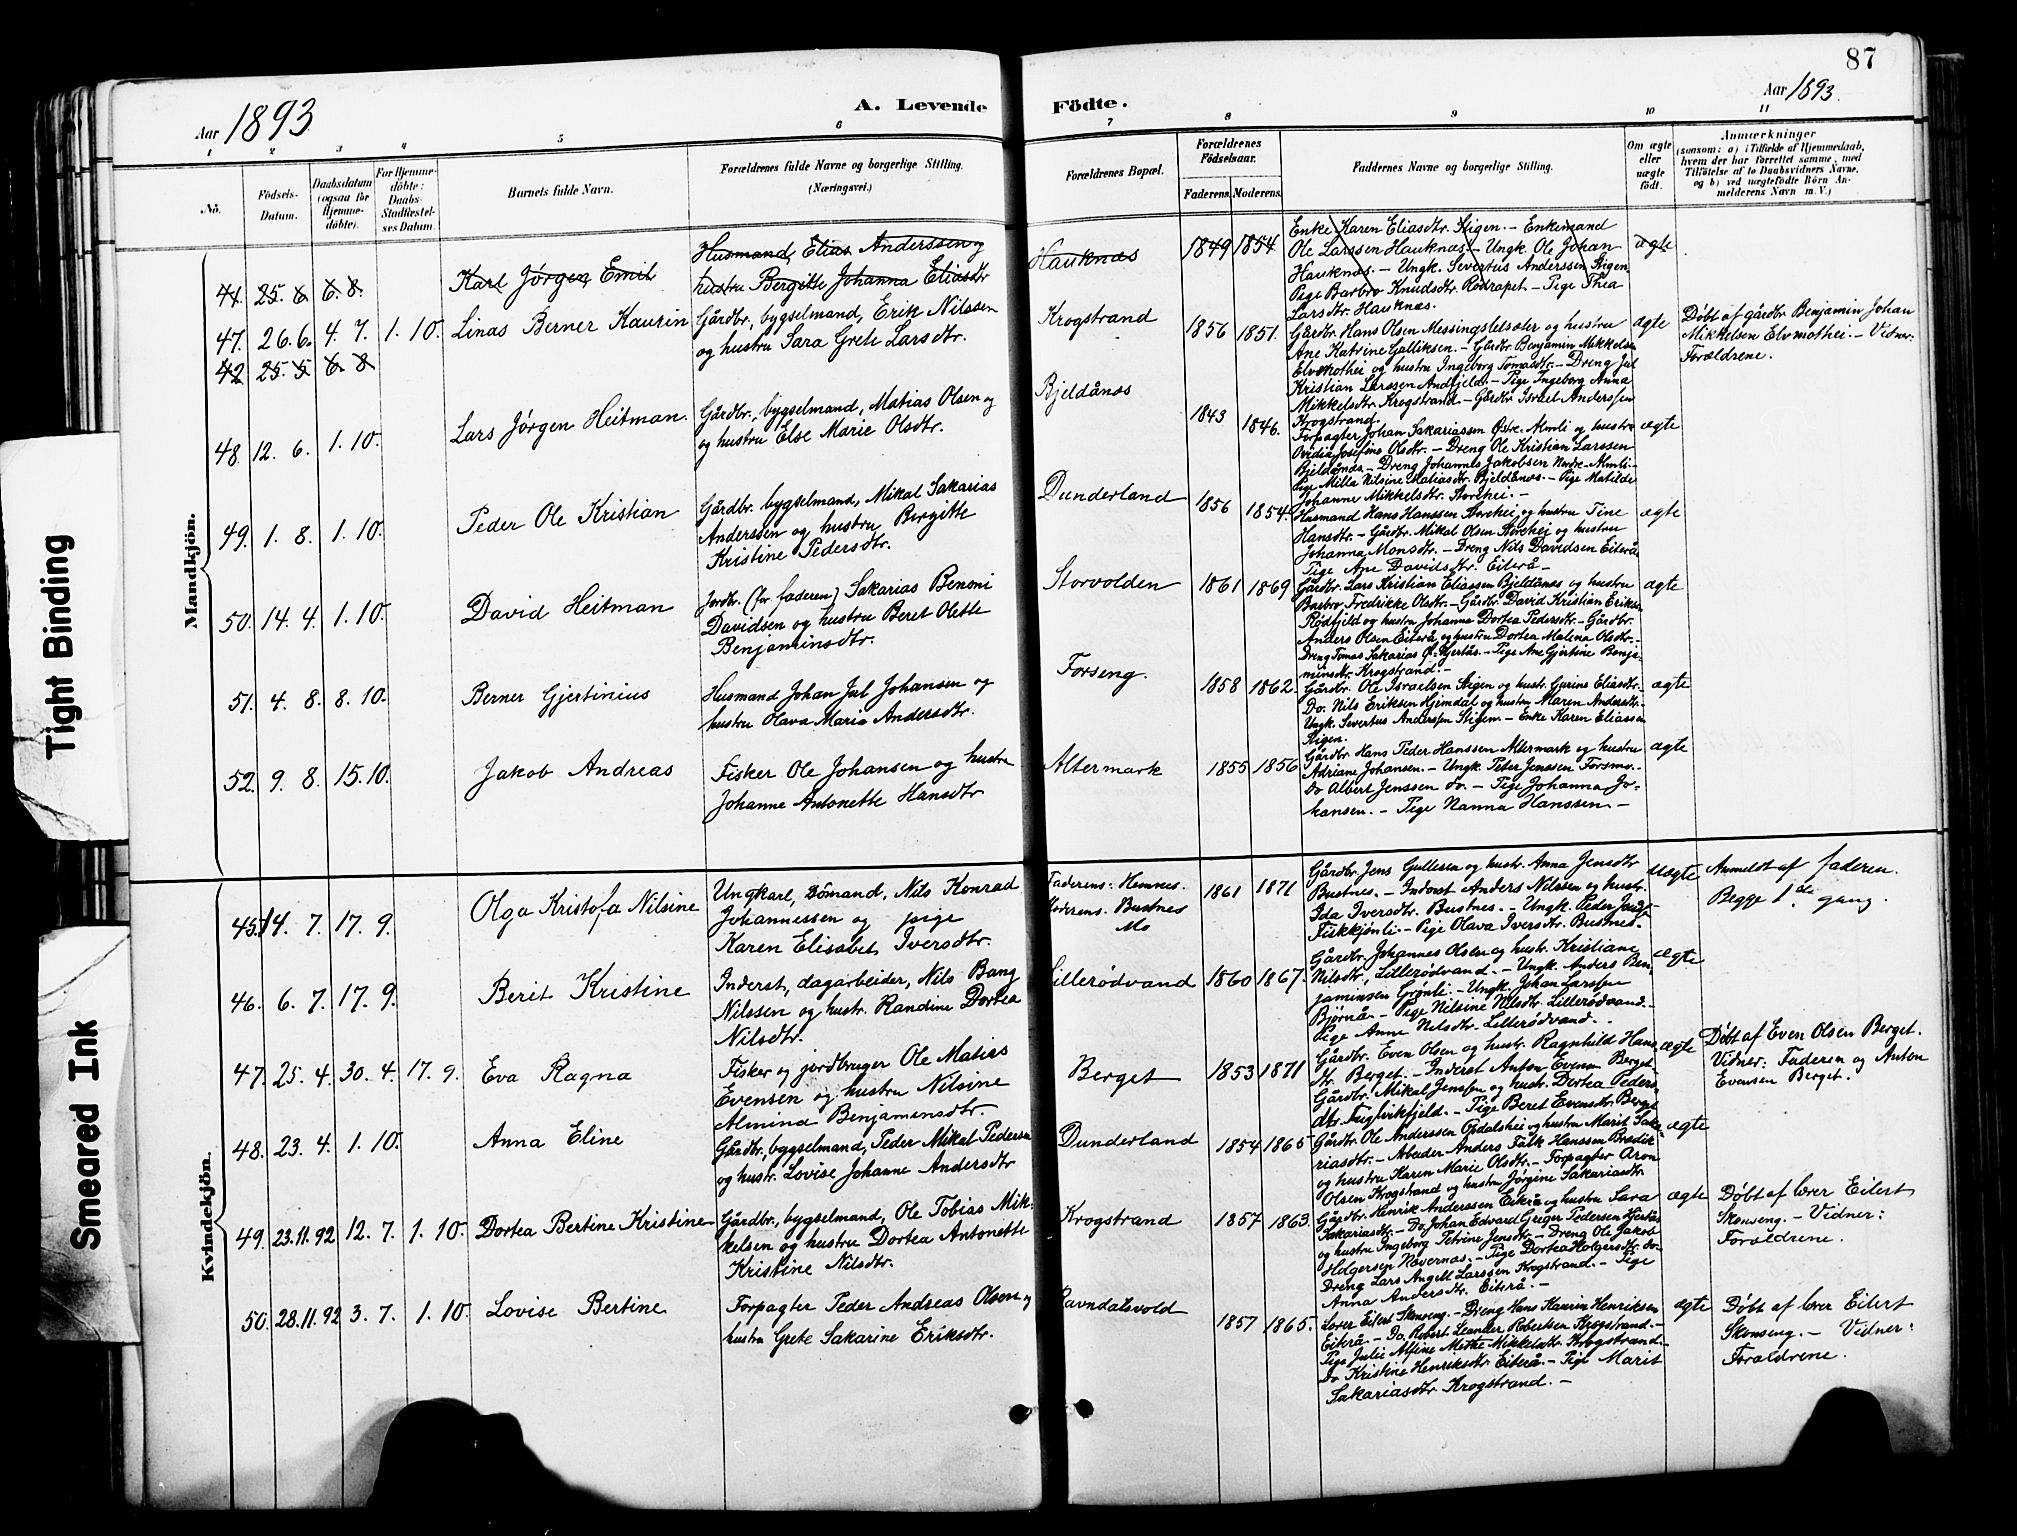 87
Aar 1893
A. Levende Födte.
Aar 1893.
1 2 3 4 5 6 7 8 9 10 11
Nö.
Födsels-Datum.
Daabsdatum (ogsaa for Hjemme-döbte).
For Hjemme-döbte: Daabs-Stadfæstel-ses Datum.
Barnets fulde Navn.
Forældrenes fulde Navne og borgerlige Stilling.
(Næringsvei.)
Forældrenes Bopæl.
Forældrenes Födselsaar.
Faderens. Moderens.
Faddernes Navne og borgerlige Stilling.
Om ægte eller uægte födt.
Anmærkninger
(saasom: a) i Tilfælde af Hjemmedaab,
hvem der har forrettet samme, med
Tilföielse af to Daabsvidners Navne.
og b) ved uægtefödte Börn An-
melderens Navn m. V.)
Mandkjön.
41. 25. 6. 6. 8. Karl Jörgen Emil
Husmand, Elias Anderssen og
hustru Bergitte Johanna Eliasdtr
Hauknæs 1849 1854
Enke Karen Eliasdtr. Stigen. - Enkemand
Ole Larssen Hauknæs - Ungk. Ole Johan
Hauknæs. - Ungk. Severtus Anderssen Stigen
Pige Barbro Knudsdtr. Rödrapet - Pige Thea
Larsdtr. Hauknæs.
ægte
47. 26. 6. 4. 7. 1. 10. Linas Berner Kaurin
Gårdbr., bygselmand, Erik Nilssen
og hustru Sara Grete Larsdtr.
Krogstrand 1856 1851.
Gårdbr. Hans Olsen Messingsletsæter og hustru
Ane Katrine Galliksen. - Gårdbr. Benjamin Mikkelsen
Elvmothei og hustru Ingeborg Tomasdtr. - Dreng Jul
Kristian Larssen Andfjeld. - Pige Ingeborg Anna
Mikkelsdtr. Krogstrand. - Gårdbr. Israel Anderssen
Krogstrand.
ægte
Döbt af gårdbr. Benjamin Johan
Mikkelsen Elvmothei. - Vidner:
Forældrene.
42 25. 5 6. 8
48. 12. 6. 1. 10. Lars Jörgen Heitman.
Gårdbr., bygselmand, Matias Olsen og
og hustru Else Marie Olsdtr.
Bjeldånæs 1843 1846.
Forpagter Johan Sakariassen Östre-Almli og hustru
Ovidia Josefine Olsdtr. - Dreng Ole Kristian Larssen
Bjeldånæs. - Dreng Johannes Jakobsen Nordre-Almli. -
Pige Milla Nilsine Matiasdtr. Bjeldånæs. - Pige Matilde
Johanne Mikkelsdtr. Storehei. -
ægte
49. 1. 8. 1. 10. Peder Ole Kristian
Gårdbr. bygselmand, Mikal Sakarias
Anderssen og hustru Birgitte
Kristine Pedersdtr.
Dunderland 1856 1854.
Husmand Hans Hanssen Storehei og hustru Tine
Hansdtr. - Gårdbr. Mikal Olsen Storehei og hustru
Johanna Monsdtr. - Dreng Nils Davidsen Eiterå.
Pige Ane Davidsdtr. Eiterå -
ægte
50. 14. 4. 1. 10. David Heitman
Jordbr. (for faderen) Sakarias Benoni
Davidsen og hustru Beret Olette
Benjaminsdtr.
Storvolden 1861 1869
Gårdbr. Lars Kristian Eliassen Bjeldånæs og hustru
Barbro Fredrikke Olsdtr. - Gårdbr. David Kristian Eriksen
Rödfjeld og hustru Johanna Dortea Pedersdtr. - Gårdbr.
Anders Olsen Eiterå og hustru Dortea Malena Olsdtr. -
Dreng Tomas Sakarias Hjertås. - Pige Ane Gjertine Benja-
minsdtr. Krogstrand. -
ægte
51. 4. 8. 8. 10. Berner Gjertinius
Husmand Johan Jul Johansen og
hustru Olava Maria Andersdtr.
Forseng. 1858 1862.
Gårdbr. Ole Israelsen Stigen og hustr. Gurine Eliasdtr.
Do. Nils Eriksen Hjemdal og hustru Maren Andersdtr.
Ungk. Severtus Anderssen Stigen. - Enke Karen Eliassen
Stigen.
ægte
52. 9. 8. 15. 10. Jakob Andreas
Fisker Ole Johansen og hustru
Johanne Antonette Hansdtr
Altermark 1855 1856
Gårdbr. Hans Peder Hanssen Altermark og hustru
Adriane Johansen. - Ungk. Peter Jenssen Forsmo.
Do Albert Jenssen do. - Pige Johanna Jo-
hansen. - Pige Nanna Hanssen -
ægte
Kvindekjön.
45. 14. 7. 17. 9. Olga Kristofa Nilsine
Ungkarl, Sömand, Nils Konrad
Johannessen og pige
Karen Elisabet Iversdtr.
Faderens: Hemnes.
Moderens: Bustnes
Mo
1861 1871
Gårdbr. Jens Gullesen og hustr. Anna Jensdtr
Bustnes. - Inderst Anders Nilssen og hustr.
Ida Iversdtr. Bustnes. - Ungk. Peder
Fiskkjönli - Pige Olava Iversdtr. Bustnes.
uægte
Anmeldt af faderen.
Begge 1de gang.
46. 6. 7. 17. 9. Berit Kristine
Inderst, dagarbeider, Nils Bang
Nilssen og hustr. Randine Dortea
Nilsdtr.
Lillerødvand 1860 1867.
Gårdbr. Johannes Olsen og hustr. Kristiane
Nilsdtr. Lillerødvand. - Ungk. Anders Ben
jaminsen Grönli. - Ungk. Johan Larssen
Bjørnå. - Pige Nilsine Nilsdtr. Lillerødvand.
Pige Anne Nilsdtr. Lillerødvand. -
ægte
47. 25. 4. 30. 4. 17. 9. Eva Ragna
Fisker og jordbruger Ole Matias
Evensen og hustru Nilsine
Almina Benjaminsdtr.
Berget 1853 1871
Gårdbr. Even Olsen og hustr. Ragnhild Hans
dtr. Berget. - Inderst Anton Evensen Berget.
Gårdbr. Mikal Jenssen og hustr. Dortea Peders
dtr. Fuglvikfjeld. - Pige Beret Evensdtr. Berget
ægte
Döbt af Even Olsen Berget.
Vidner: Faderen og Anton
Evensen Berget.
48. 23. 4. 1. 10. Anna Eline
Gårdbr., bygselmand, Peder Mikal Pedersen
og hustr. Lovise Johanne Andersdtr
Dunderland 1854 1865.
Gårdbr. Ole Anderssen Opdalshei og hustru Marit Saka-
riasdtr. - Arbeider Anders Falk Hanssen Bredik
og hustru Karen Marie Olsdtr. - Forpagter Aron
Olsen Krogstrand og hustru Jörgine Sakariasdtr
ægte
49. 23. 11. 92 12. 7. 1. 10. Dortea Bertine Kristine
Gårdbr., bygselmand, Ole Tobias Mik-
kelsen og hustru Dortea Antonette
Kristine Nilsdtr.
Krogstrand 1857 1863.
Gårdbr. Henrik Anderssen Eiterå og hustru Sara
Sakariasdtr. - Do. Johan Edvard Greger Pedersen Hjertås
og hustru Ingeborg Petrine Jensdtr. - Dreng Ole Jakob
Holgersen Nævernæs. - Pige Dortea Holgersdtr. do.
Dreng Lars Angell Larssen Krogstrand. - Pige
Anna Andersdtr. Eiterå. -
ægte
Döbt af lærer Eilert
Skonseng. - Vidner:
Forældrene.
50. 28. 11. 92 3. 7. 1. 10. Lovise Bertine
Forpagter Peder Andreas Olsen og
hustru Grete Sakarine Eriksdtr.
Ravndalsvold 1857 1865.
Lærer Eilert Skonseng. - Dreng Hans Kaurin Henriksen
Eiterå. - Do. Robert Leander Robertsen Krogstrand. -
Pige Julie Alfine Metke Mikkelsdtr. Krogstrand.
Do Kristine Henriksdtr. Eiterå. - Pige Marit
Sakariasdtr Krogstrand. -
ægte
Döbt af lærer Eilert
Skonseng. - Vidner:
Forældrene.
Tight Binding
Smeared Ink